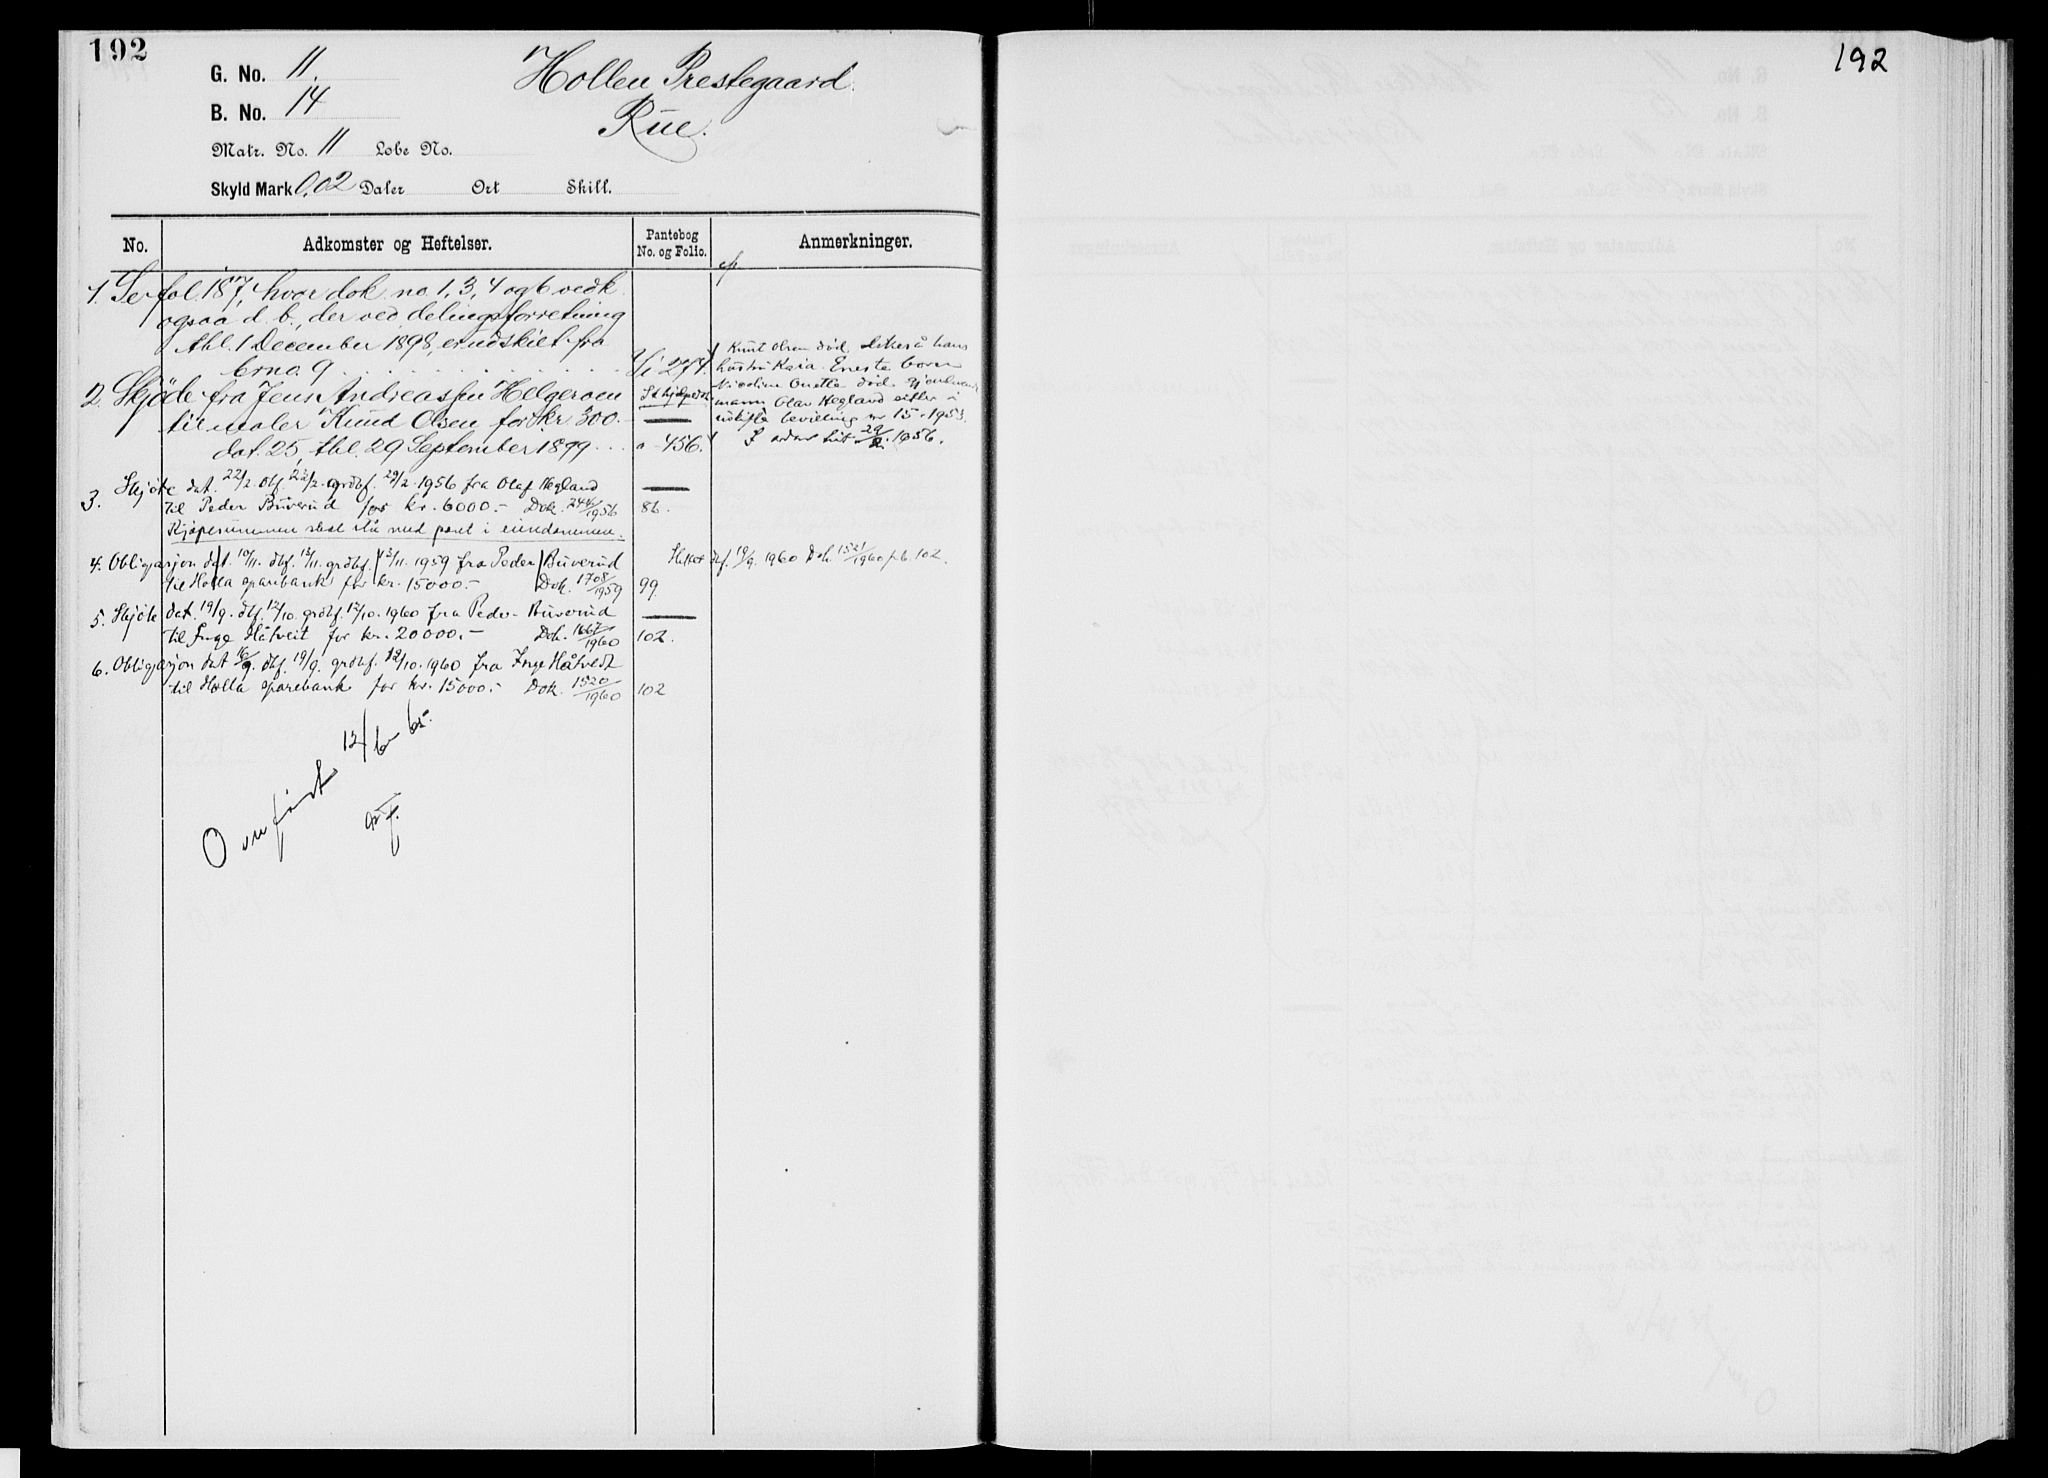 192
G. No. 11.
Hollen Prestegaard.
B. No. 14
Rue.
Matr. No. 11 Løbe No.
Skyld Mark 0,02 Daler Ort Skill.
No. Adkomster og Heftelser. Pantebog No. og Folio. Anmerkninger.
1. Se fol. 187, hvor dok. no. 1, 3, 4 og 6 vedk.
ogsaa d. b., der ved delingsforretning
thl. 1 December 1898, er udskilt fra
brno. 9 . . . . 274.
2. Skjøde fra Jens Andreassen Helgeroen
til maler Knud Olsen for kr. 300.
dat. 25, thl. 29 September 1899 . . . 456.
Knut Olsen død, likeså hans
hustru Kaia. Eneste barn
død. gjenlevende
mann Olav Hegland sitter i
uskifte bevilling nr 15. 1953.
29/2. 1956.
3. Skjøte dat. 22/2. dbf. 23/2. grdbf. 29/2. 1956 fra Olaf Hegland
til Peder Buverud for kr. 6000.- Dok. 244/1956 86.
Kjøpesummen skal stå med pant i eiendommen.
4. Obligasjon dat. 10/11. dbf. 13/11. grdbf. 13/11. 1959 fra Peder Buverud
til Holla sparebank for kr. 15000.- Dok. 1708/1959 99.
Slettet dbf. 19/9. 1960 Dok 1521/1960 pb. 102.
5. Skjøte dat 19/9. dbf. 12/10. grdbf. 12/10. 1960 fra Peder Buverud
til Inge Håtveit for kr. 20000.- Dok. 1667/1960 102.
6. Obligasjon dat 16/9. dbf. 19/9. grdbf. 12/10. 1960 fra Inge Håtvedt
til Holla sparebank for kr. 15000.- Dok. 1520/1960 102
Overført 12/6 65.
192